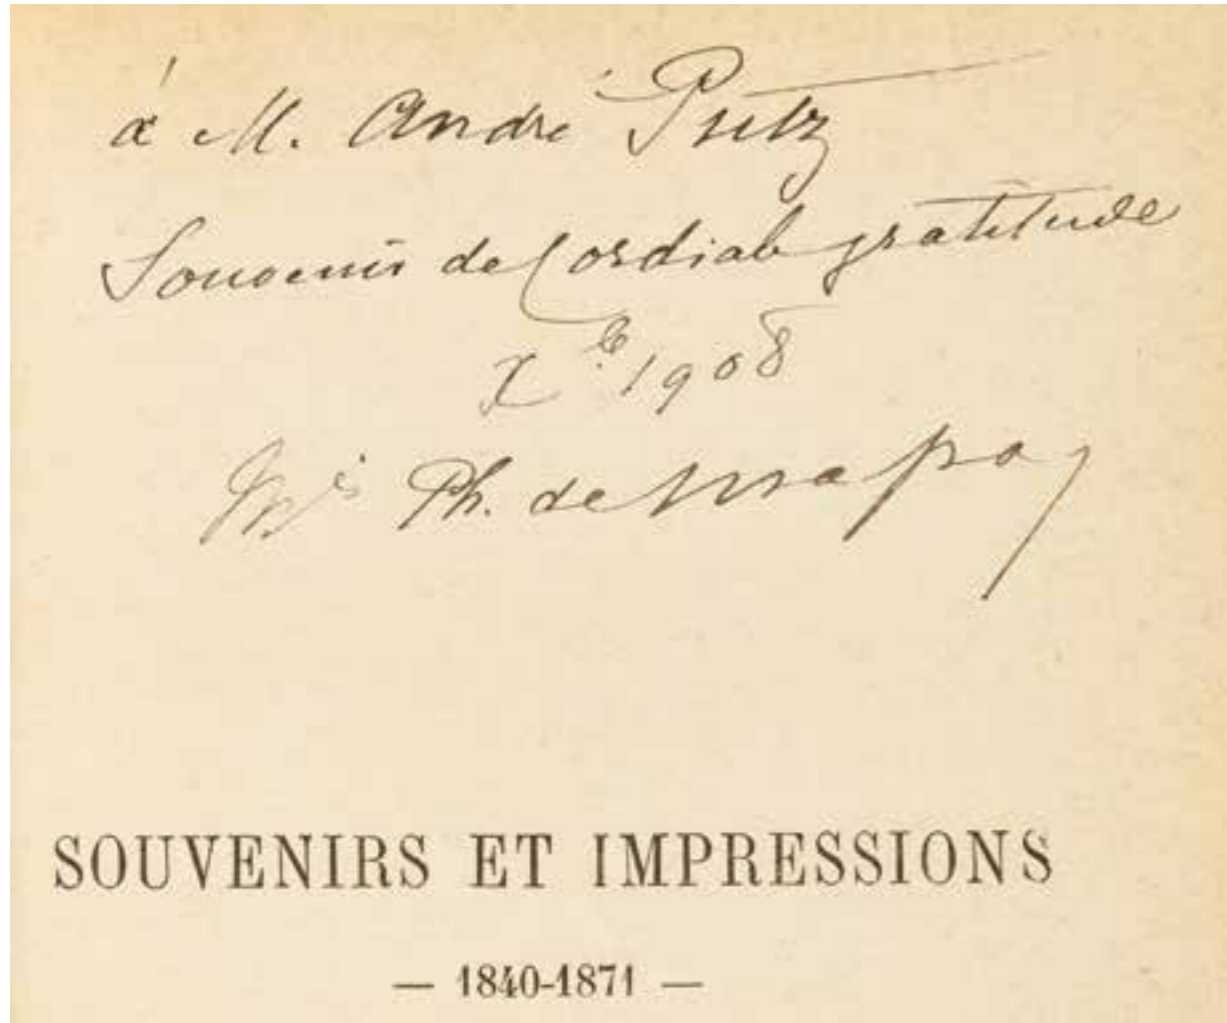 à M. André Putz
Souvenir de Cordiale gratitude
Xbe 1908
Mis Ph. de Massa
SOUVENIRS ET IMPRESSIONS
— 1840-1871 —